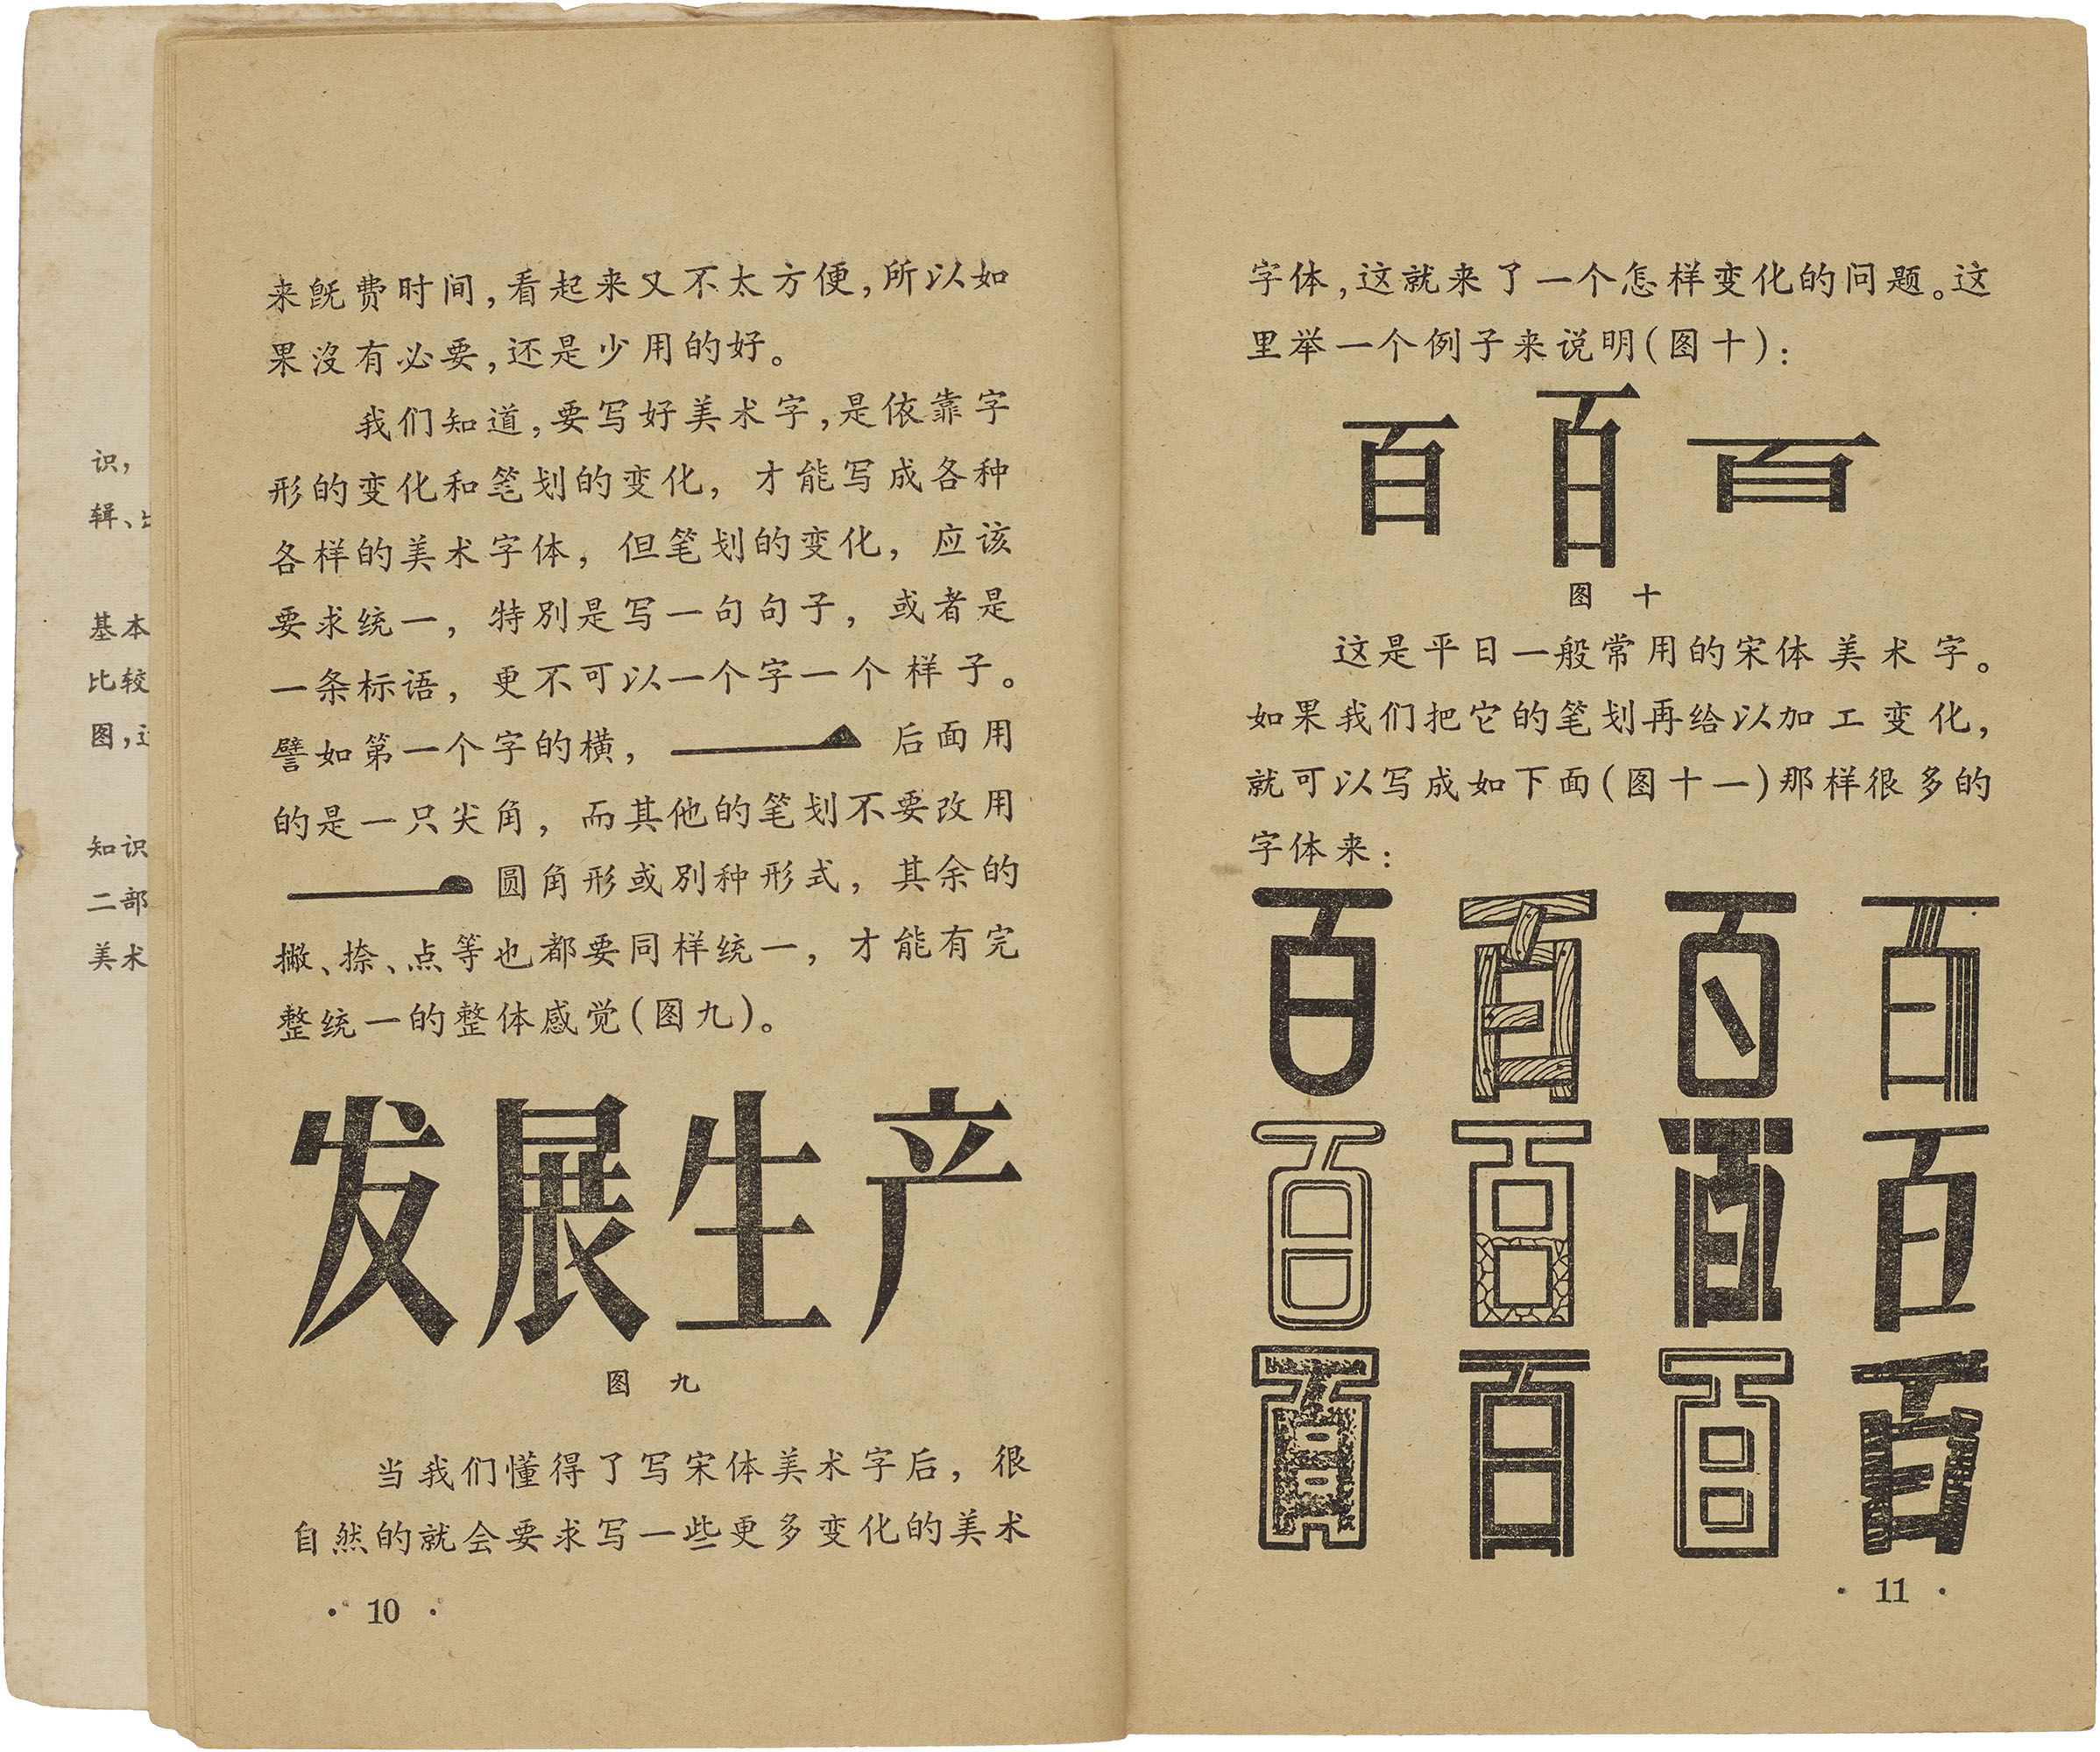 识，
辑、
基本
比较
图，
知识
二部
美术
来旣费时间，看起来又不太方便，所以如
果沒有必要，还是少用的好。
我们知道，要写好美术字，是依靠字
形的变化和笔划的变化，才能写成各种
各样的美术字体，但笔划的变化，应该
要求统一，特別是写一句句子，或者是
一条标语，更不可以一个字一个样子。
譬如第一个字的横，后面用
的是一只尖角，而其他的笔划不要改用
圆角形或別种形式，其余的
撇、捺、点等也都要同样统一，才能有完
整统一的整体感觉（图九）。
发展生产
图 九
当我们懂得了写宋体美术字后，很
自然的就会要求写一些更多变化的美术
· 10 ·
字体，这就来了一个怎样变化的问题。这
里举一个例子来说明（图十）：
百 百 百
图 十
这是平日一般常用的宋体美术字。
如果我们把它的笔划再给以加工变化，
就可以写成如下面（图十一）那样很多的
字体来：
百 百 百 百
百 百 百 百
百 百 百 百
· 11 ·